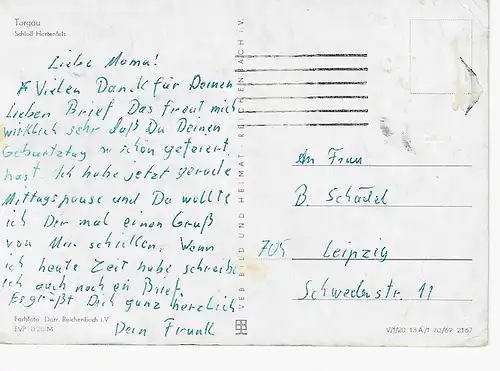 Torgau
Schloß Hartenfels
Liebe Mama!
Vielen Danck für Deinen
Lieben Brief Das freut mich
wirklich sehr daß Du Deinen
Geburtztag so schön gefeiert
hast. Ich habe jetzt gerade
Mittagspause und Da wollte
ich Dir mal einen Gruß
von Mir schicken. Wenn
ich heute Zeit habe schreibe
ich auch noch ein Brief.
Es grüßt Dich ganz herzlich
Dein Frank
Farbfoto: Darr, Reichenbach i. V.
EVP 0,20 M
VEB BILD UND HEIMAT REICHENBACH i. V.
An Frau
B. Schädel
705 Leipzig
Schwedenstr. 11
V/1/20 13 A/1 70/69 2167